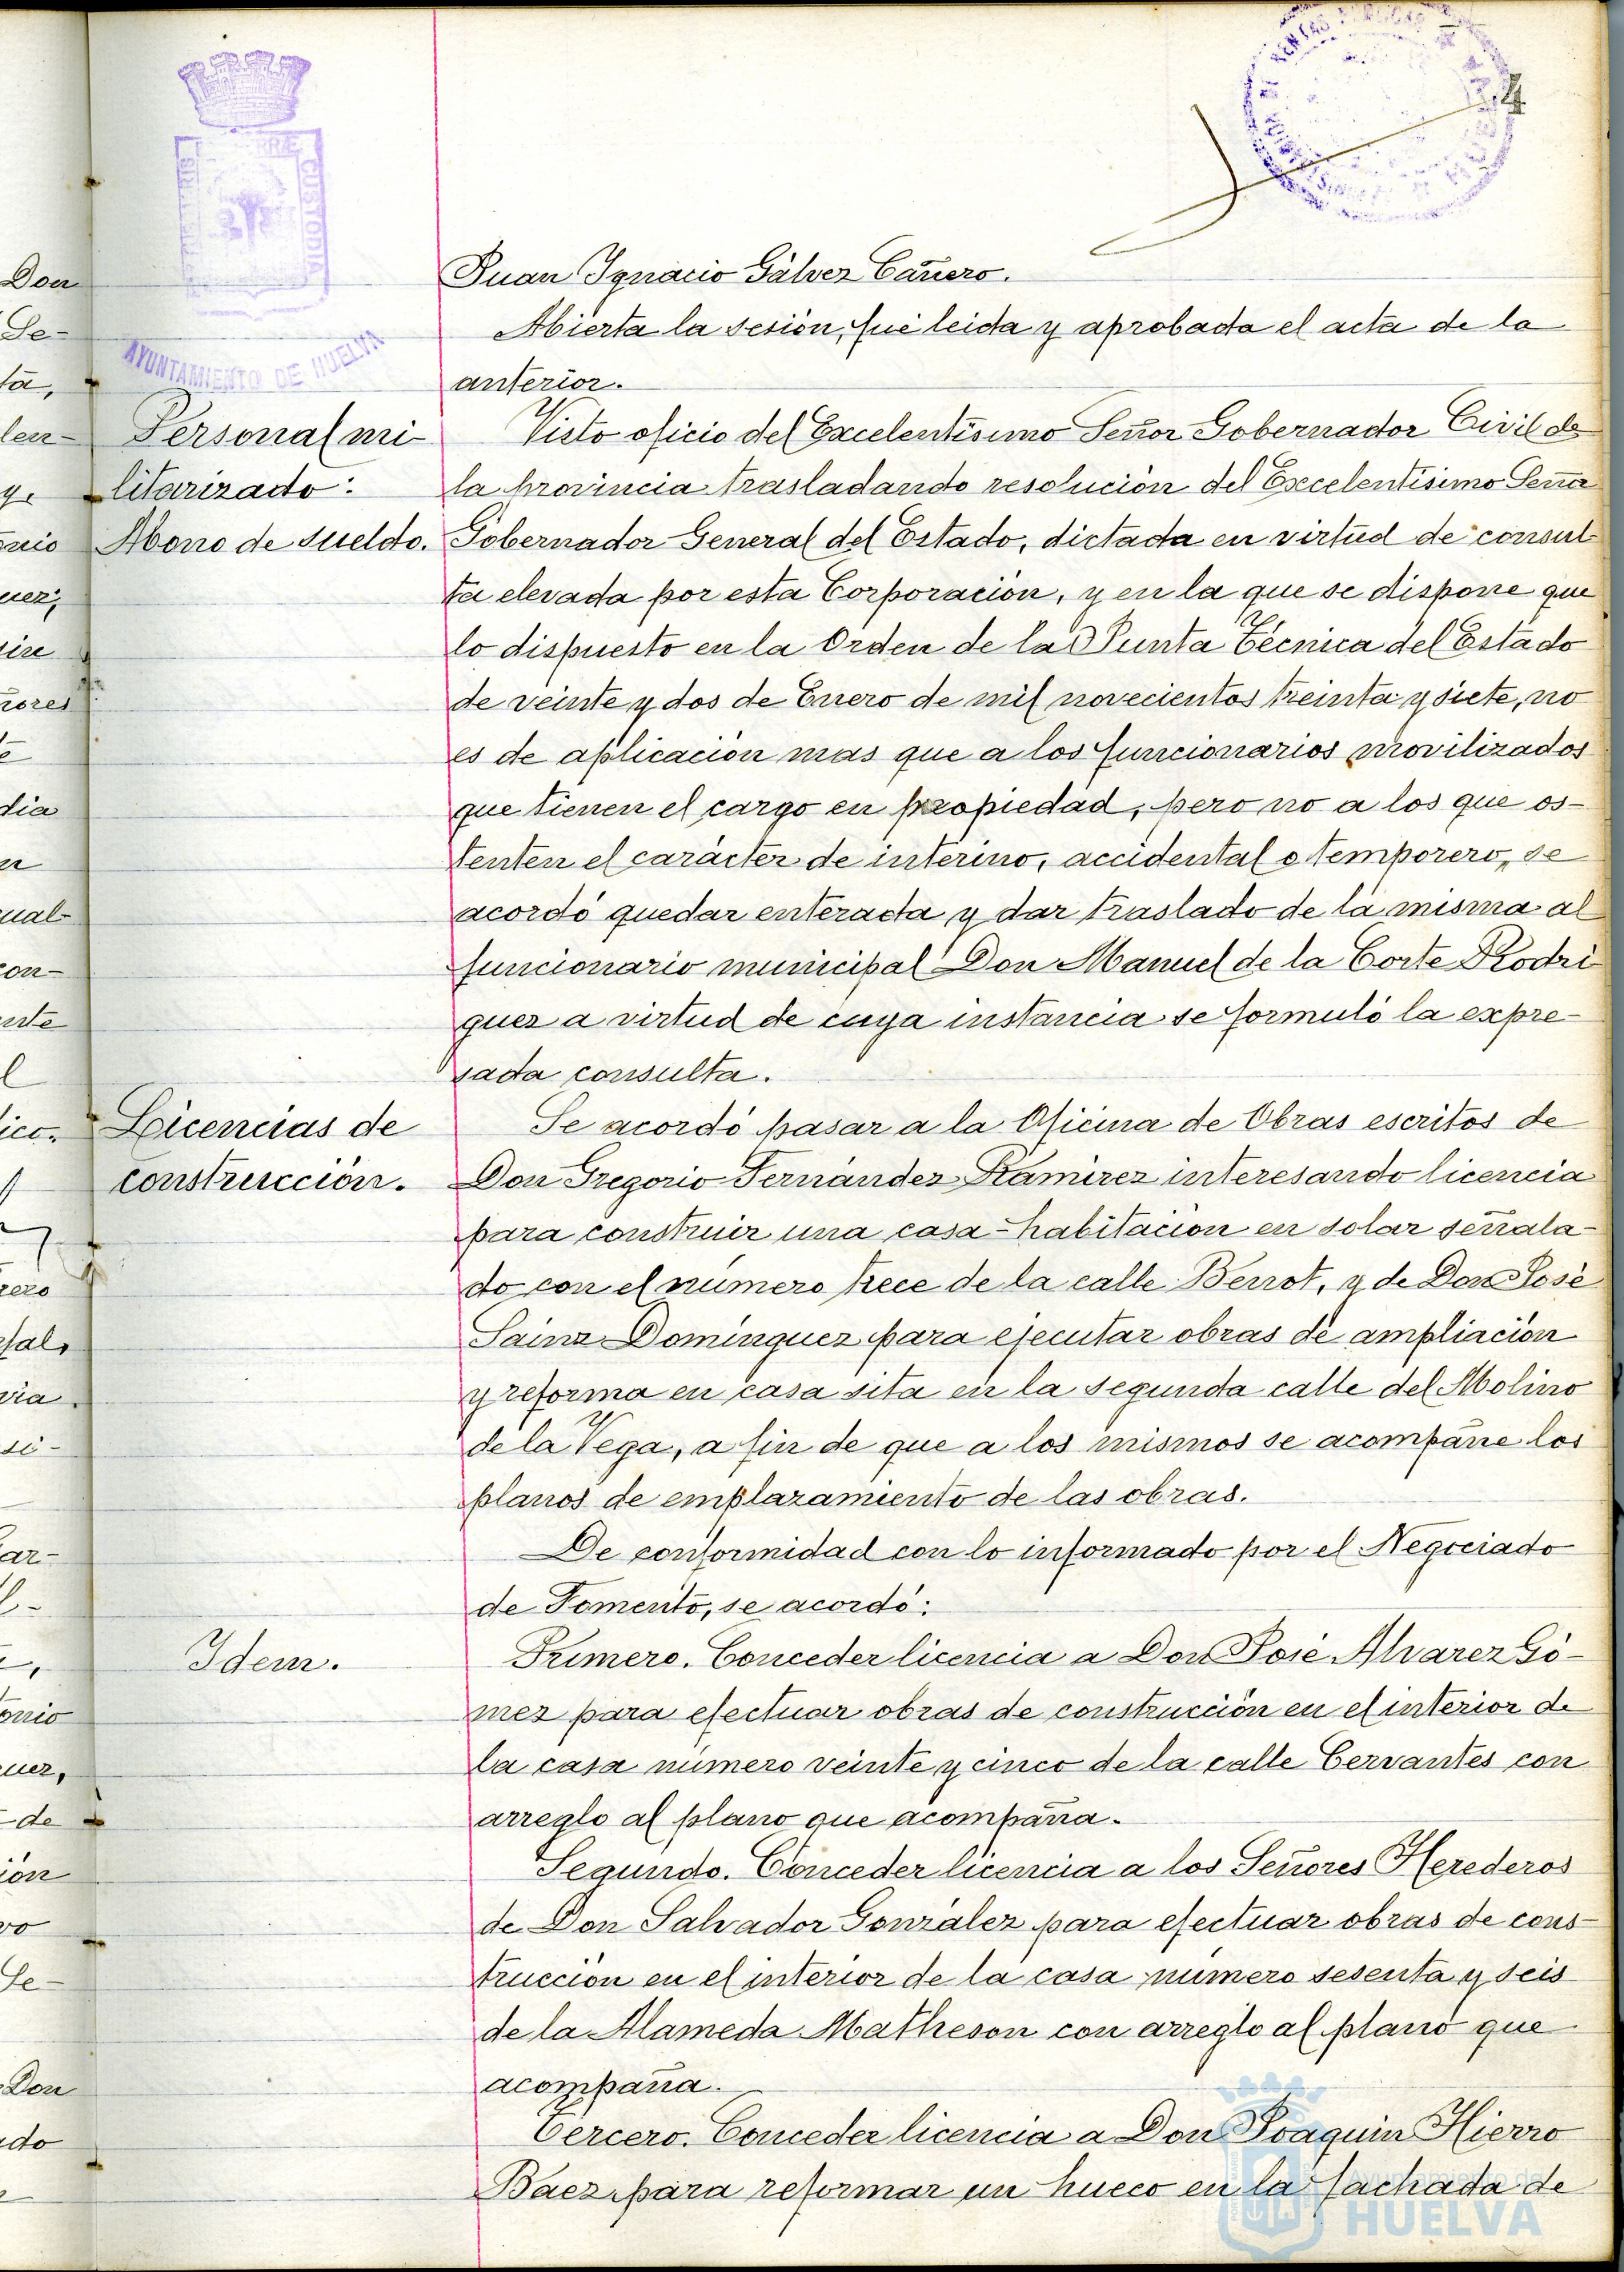 24
PORTUS MARIS
ET TERRÆ
CUSTODIA
AYUNTAMIENTO DE HUELVA
Juan Ignacio Gálvez Cañero.
Abierta la sesión, fué leida y aprobada el acta de la
anterior.
Personal mi-
litarizado:
Abono de sueldo.
Visto oficio del Excelentísimo Señor Gobernador Civil de
la provincia trasladando resolución del Excelentísimo Señor
Gobernador General del Estado, dictada en virtud de consul-
ta elevada por esta Corporación, y en la que se dispone que
lo dispuesto en la Orden de la Junta Técnica del Estado
de veinte y dos de Enero de mil novecientos treinta y siete, no
es de aplicación mas que a los funcionarios movilizados
que tienen el cargo en propiedad, pero no a los que os-
tenten el carácter de interino, accidental o temporero, se
acordó quedar enterada y dar traslado de la misma al
funcionario municipal Don Manuel de la Corte Rodri
guez a virtud de cuya instancia se formuló la expre-
sada consulta.
Licencias de
construcción.
Se acordó pasar a la Oficina de Obras escritos de
Don Gregorio Fernández Ramírez interesando licencia
para construir una casa-habitación en solar señala-
do con el número trece de la calle Berrot, y de Don José
Sainz Domínguez para ejecutar obras de ampliación
y reforma en casa sita en la segunda calle del Molino
de la Vega, a fin de que a los mismos se acompañe los
planos de emplazamiento de las obras.
De conformidad con lo informado por el Negociado
de Fomento, se acordó:
Idem.
Primero. Conceder licencia a Don José Alvarez Gó-
mez para efectuar obras de construcción en el interior de
la casa número veinte y cinco de la calle Cervantes con
arreglo al plano que acompaña.
Segundo. Conceder licencia a los Señores Herederos
de Don Salvador González para efectuar obras de cons-
trucción en el interior de la casa número sesenta y seis
de la Alameda Matheson con arreglo al plano que
acompaña.
Tercero. Conceder licencia a Don Joaquin Hierro
Baez para reformar un hueco en la fachada de
Ayuntamiento de
HUELVA